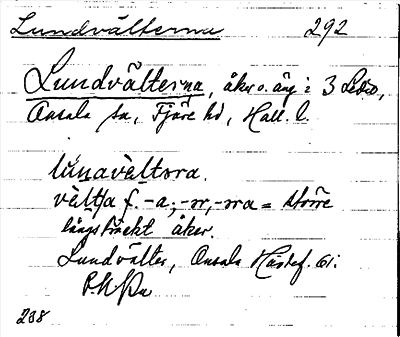 Lundvälterna 292
Lundvälterna, åker o. äng i 3 Lebro,
Onsala sn, Fjäre hd, Hall. l.
lúnavèltɔra.
vèltja f. -a; -ɔr, -ɔra = större
långsträckt åker.
Lundvälter, Onsala Hästef. 61:
238